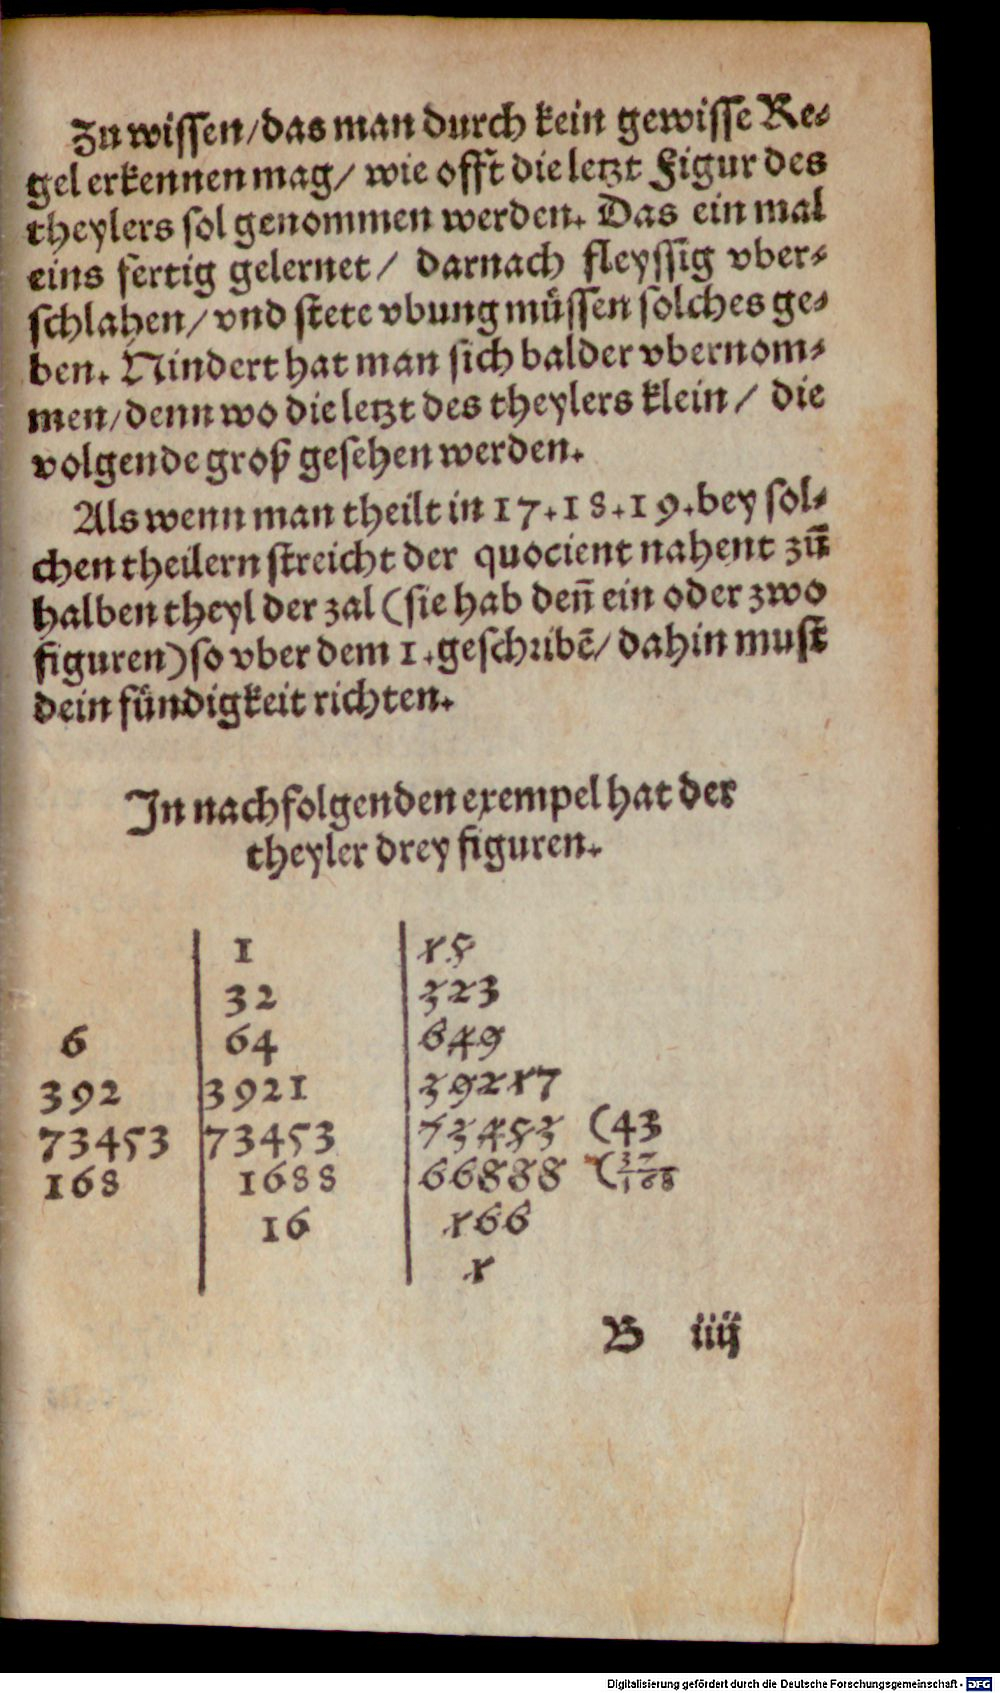 Zu wissen/das man durch kein gewisse Re⸗
gel erkennen mag/ wie offt die letzt Figur des
theylers sol genommen werden. Das ein mal
eins fertig gelernet/ darnach fleyssig vber⸗
schlahen/vnd stete vbung müssen solches ge⸗
ben. Nindert hat man sich balder vbernom⸗
men/denn wo die letzt des theylers klein/ die
volgende groß gesehen werden.
Als wenn man theilt in 17.18.19.bey sol⸗
chen theilern streicht der quocient nahent zū
halben theyl der zal (sie hab den̄ ein oder zwo
figuren) so vber dem 1.geschribē/ dahin must
dein fündigkeit richten.
In nachfolgenden exempel hat der
theyler drey figuren.
6
392
73453
168
1
32
64
3921
73453
1688
16
15
323
649
39217
73453 (43
66888 (37/168
166
1
B iiij
Digitalisierung gefördert durch die Deutsche Forschungsgemeinschaft - DFG